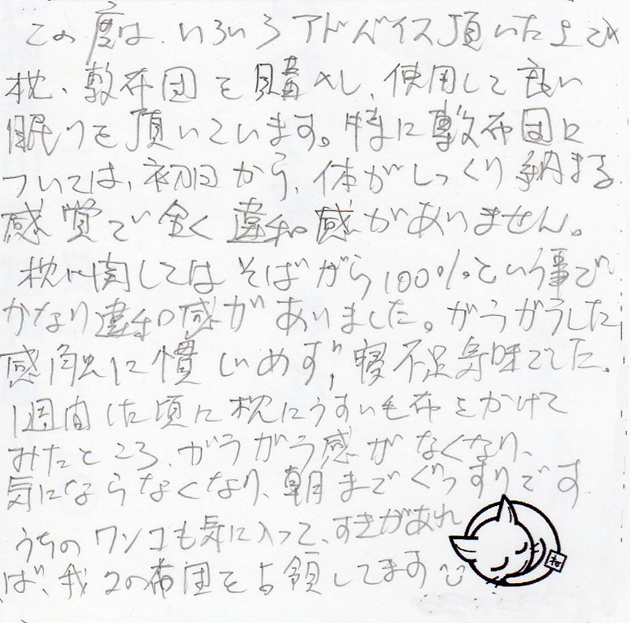 この度は、いろいろアドバイス頂いた上で
枕、敷布団を購入し、使用して良い
眠りを頂いています。特に敷布団に
ついては、初日から、体がしっくり納まる
感覚で全く違和感がありません。
枕に関してはそばがら100%という事で
かなり違和感がありました。がらがらした
感触に慣じめず、寝不足気味でした。
1週間した頃に枕にうすい毛布をかけて
みたところ、がらがら感がなくなり、
気にならなくなり、朝までぐっすりです
うちのワンコも気に入って、すきがあれ
ば、我々の布団を占領してます